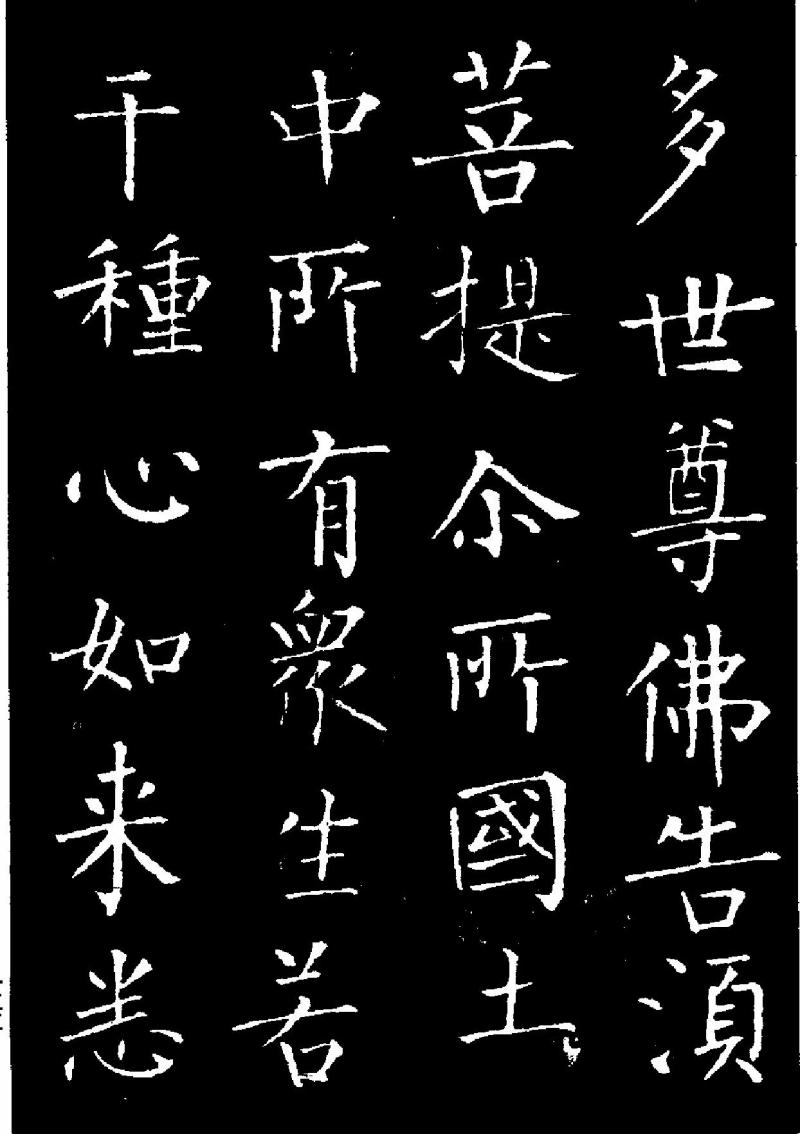 多世尊佛告湏
菩提尒所國土
中所有衆生若
干種心如来悉